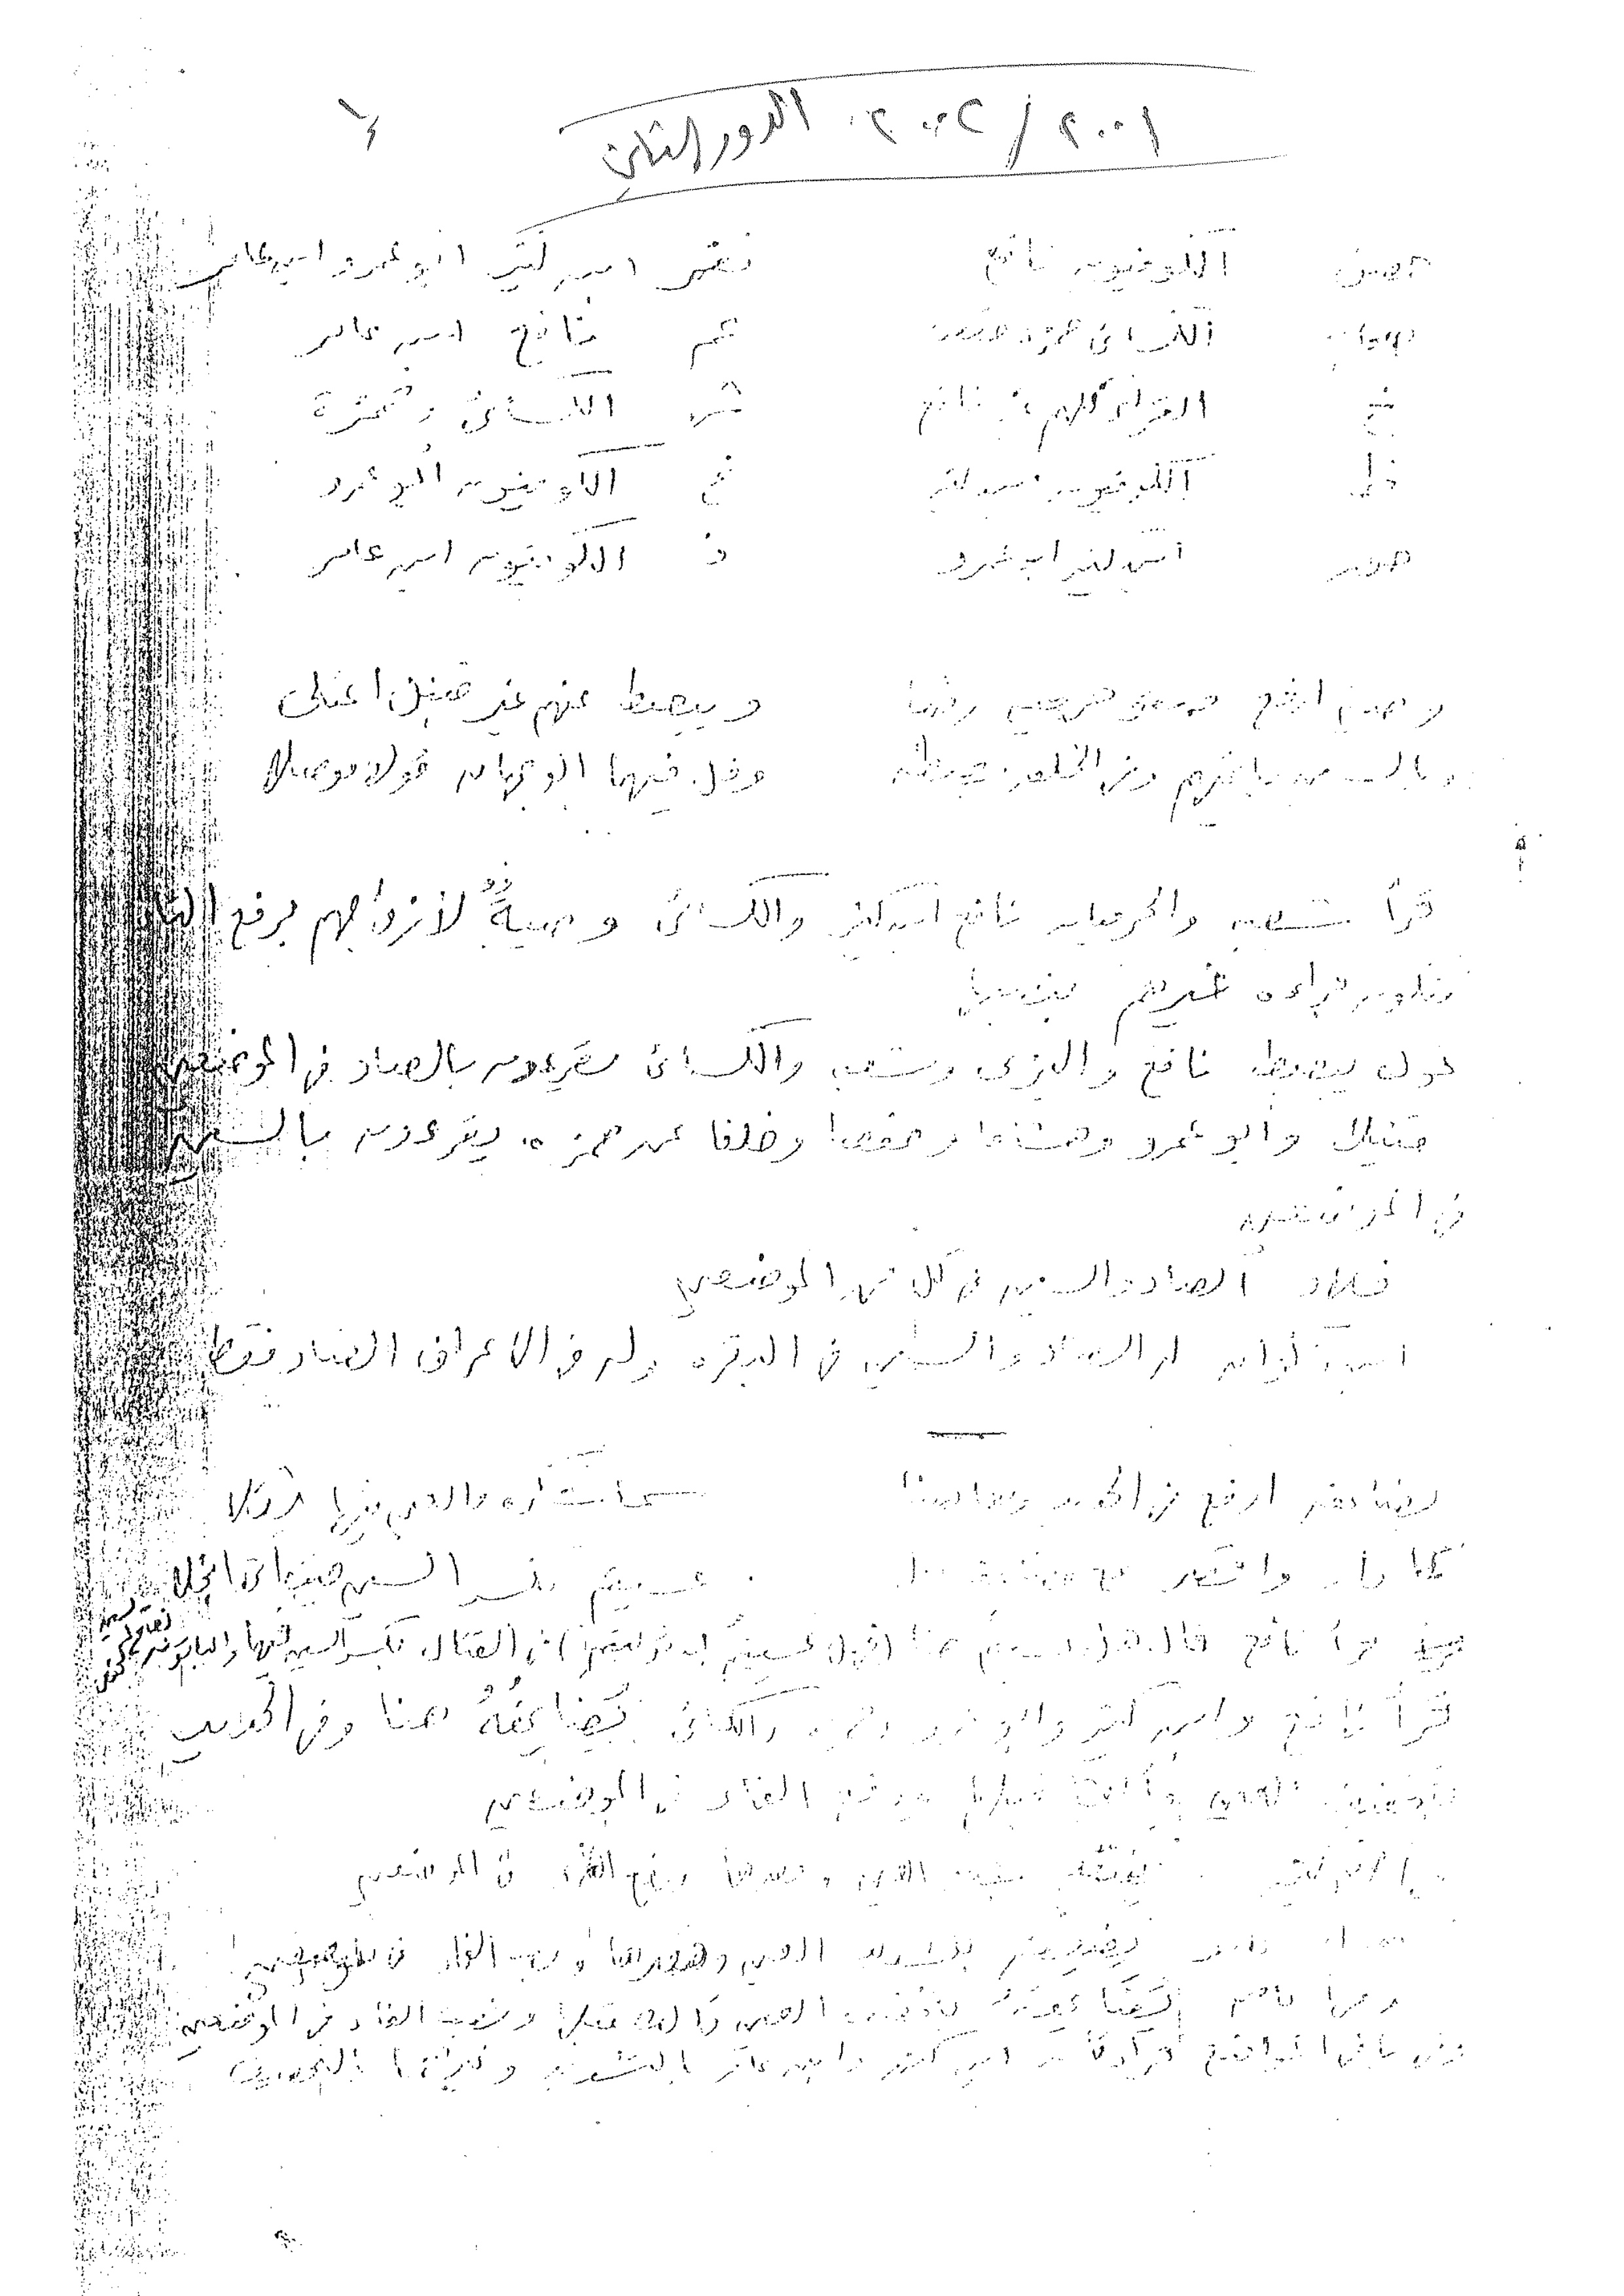 ٢٠٠١ / ٢٠٠٢ الدور الثاني
حصن الكوفيون نافع نفر ابن كثير ابو عمرو ابن عامر
صحاب الكسائي حمزة حفص عم نافع ابن عامر
خ القراء كلهم غير نافع ش الكسائي وحمزة
ظ الكوفيون ابن كثير غ الكوفيون ابو عمرو
حق ابن كثير ابو عمرو ذ الكوفيون ابن عامر
وصية ارفع صفو حرميه رضا ويبصط عنهم غير قنبل اعتلى
وبالسين باقيهم وفي الخلق بصطة وقل فيهما الوجهان قولا موصلا
قرأ شعبه والحرميان نافع ابن كثير والكسائي وصيةٌ لأزواجهم برفع التاء
فتكون قراءه غيرهم بنصبها
قوله يبصط نافع والبزى وشعبه والكسائى يقرءون بالصاد في الموضعين
قنبلا وأبو عمرو وهشاما وحفصا وخلفا عن حمزه يقرءون بالسين
في الموضعين
خلاد الصاد والسين في كل من الموضعين
ابن ذكوان له الصاد والسين في البقره وله في الاعراف الصاد فقط
يضاعفه ارفع في الحديد وهاهنا سما شكره والعين في الكل ثقلا
كما دار واقصر مع مضعفة عسيتم بكسر السين حيث اتى انجلا
قرأ نافع قال هل عسيتم هنا (فهل عسيتم ان توليتم) في القتال بكسر السين فيهما والباقون
قرأ نافع وابن كثير وابو عمرو وحمزه والكسائى فيضاعفُهُ هنا وفي الحديد
بتخفيف العين وألف قبلها ورفع الفاء في الموضعين
ابن كثير فيضعفه بتشديد العين ورفع الفاء في الموضعين
ابن عامر فيضعفه بتشديد العين وقصرها ونصب الفاء في الموضعين
وقرأ عاصم فيضاعفه بتخفيف العين وألف قبلها ونصب الفاء في الموضعين
وفي باقي المواضع قرأ ابن كثير وابن عامر بالتشديد وغيرهما بالتخفيف